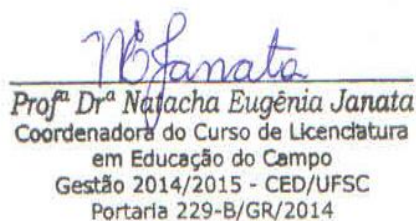 NEJanata
Profª Drª Natacha Eugênia Janata
Coordenadora do Curso de Licenciatura
em Educação do Campo
Gestão 2014/2015 - CED/UFSC
Portaria 229-B/GR/2014